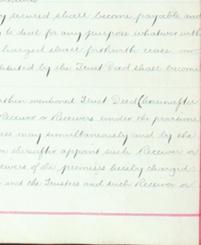 secured shall become payable and
to deal for any purpose whatsoever with
charged shall forthwith cease
by the Trust Deed shall become
mentioned Trust Deed (hereinafter
Receiver or Receivers under the
may simultaneously
appoint such Receiver or
of the premises hereby charged
and the Trustees and such Receiver or